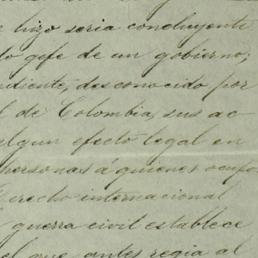 hizo seria concluyente
do gefe de un gobierno,
ndiente, desconocido por
l de Colombia, sus ac
algun efecto legal en
personas á quienes ocupo
erecho internacional
guerra civil establece
el que antes regia al